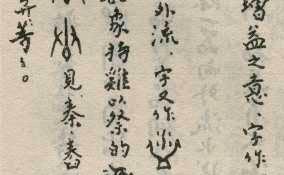 增益之意。字作
外流。字又作
象持雞以祭的
見秦。舂
弄等。